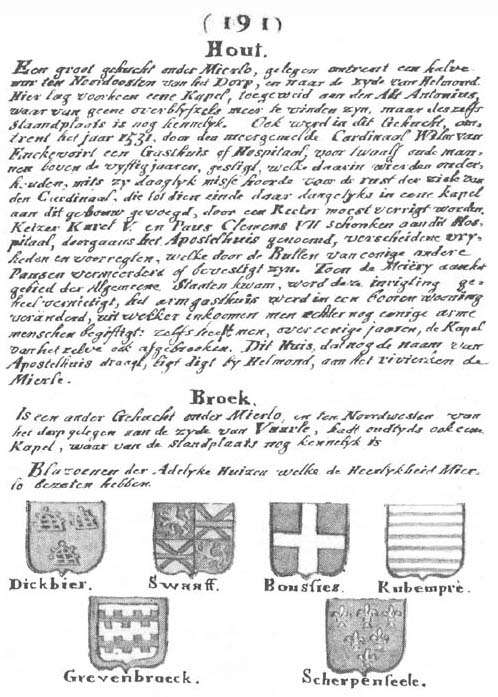 (191)
Hout.
Een groot gehucht onder Mierlo, gelegen omtrent een halve
uur ten Noordoosten van het Dorp, en naar de zyde van Helmond.
Hier lag voorheen eene Kapel, toegeweid aan den Abt Antonius,
waar van geene overblyfzels meer te vinden zyn, maar deszelfs
staandplaats is nog kennelyk. Ook werd in dit Gehucht, om-
trent het jaar 1531, door den meergemelde Cardinaal Wilm van
Enckevoirt een Gasthuis of Hospitaal, voor twaalf oude man-
nen boven de vyftig jaaren, gestigt, welke daarin wierden onder-
houden, mits zy daaglyk misse hoorde voor de rust der ziele van
den Cardinaal, die tot dien einde daar dangelyks in eene kapel
aan dit gebouw gevoegd, door een Rector moest verrigt worden.
Keizer Karel V. en Paus Clemens VII schonken aan dit Hos-
pitaal, doorgaans het Apostelhuis genoemd, verscheidene vry-
heden en voorregten, welke door de Bullen van eenige andere
Pausen vermeerderd of bevestigd zyn. Toen de Meiery aan het
gebied der Algemeene Staaten kwam, werd deze inrigting ge-
heel vernietigt, het arm gasthuis werd in een boeren wooning
veranderd, uit welker inkoomen men echter nog eenige arme
menschen begiftigt: zelfs heeft men, over eenige jaaren, de Kapel
van het zelve ook afgebrooken. Dit Huis, dat nog de naam van
Apostelhuis draagt, ligt digt by Helmond, aan het rivierken de
Mierle.
Broek.
Is een ander Gehucht onder Mierlo, en ten Noordwesten van
het dorp gelegen aan de zyde van Vaarle, hadt oudtyds ook eene
Kapel, waar van de standplaats nog kennelyk is
Blazoenen der Adelyke Huizen welke de Heerlykheid Mier-
lo bezeten hebben.
Dickbier. Swaaff. Boussies. Rubemprè.
Grevenbroeck. Scherpenseele.